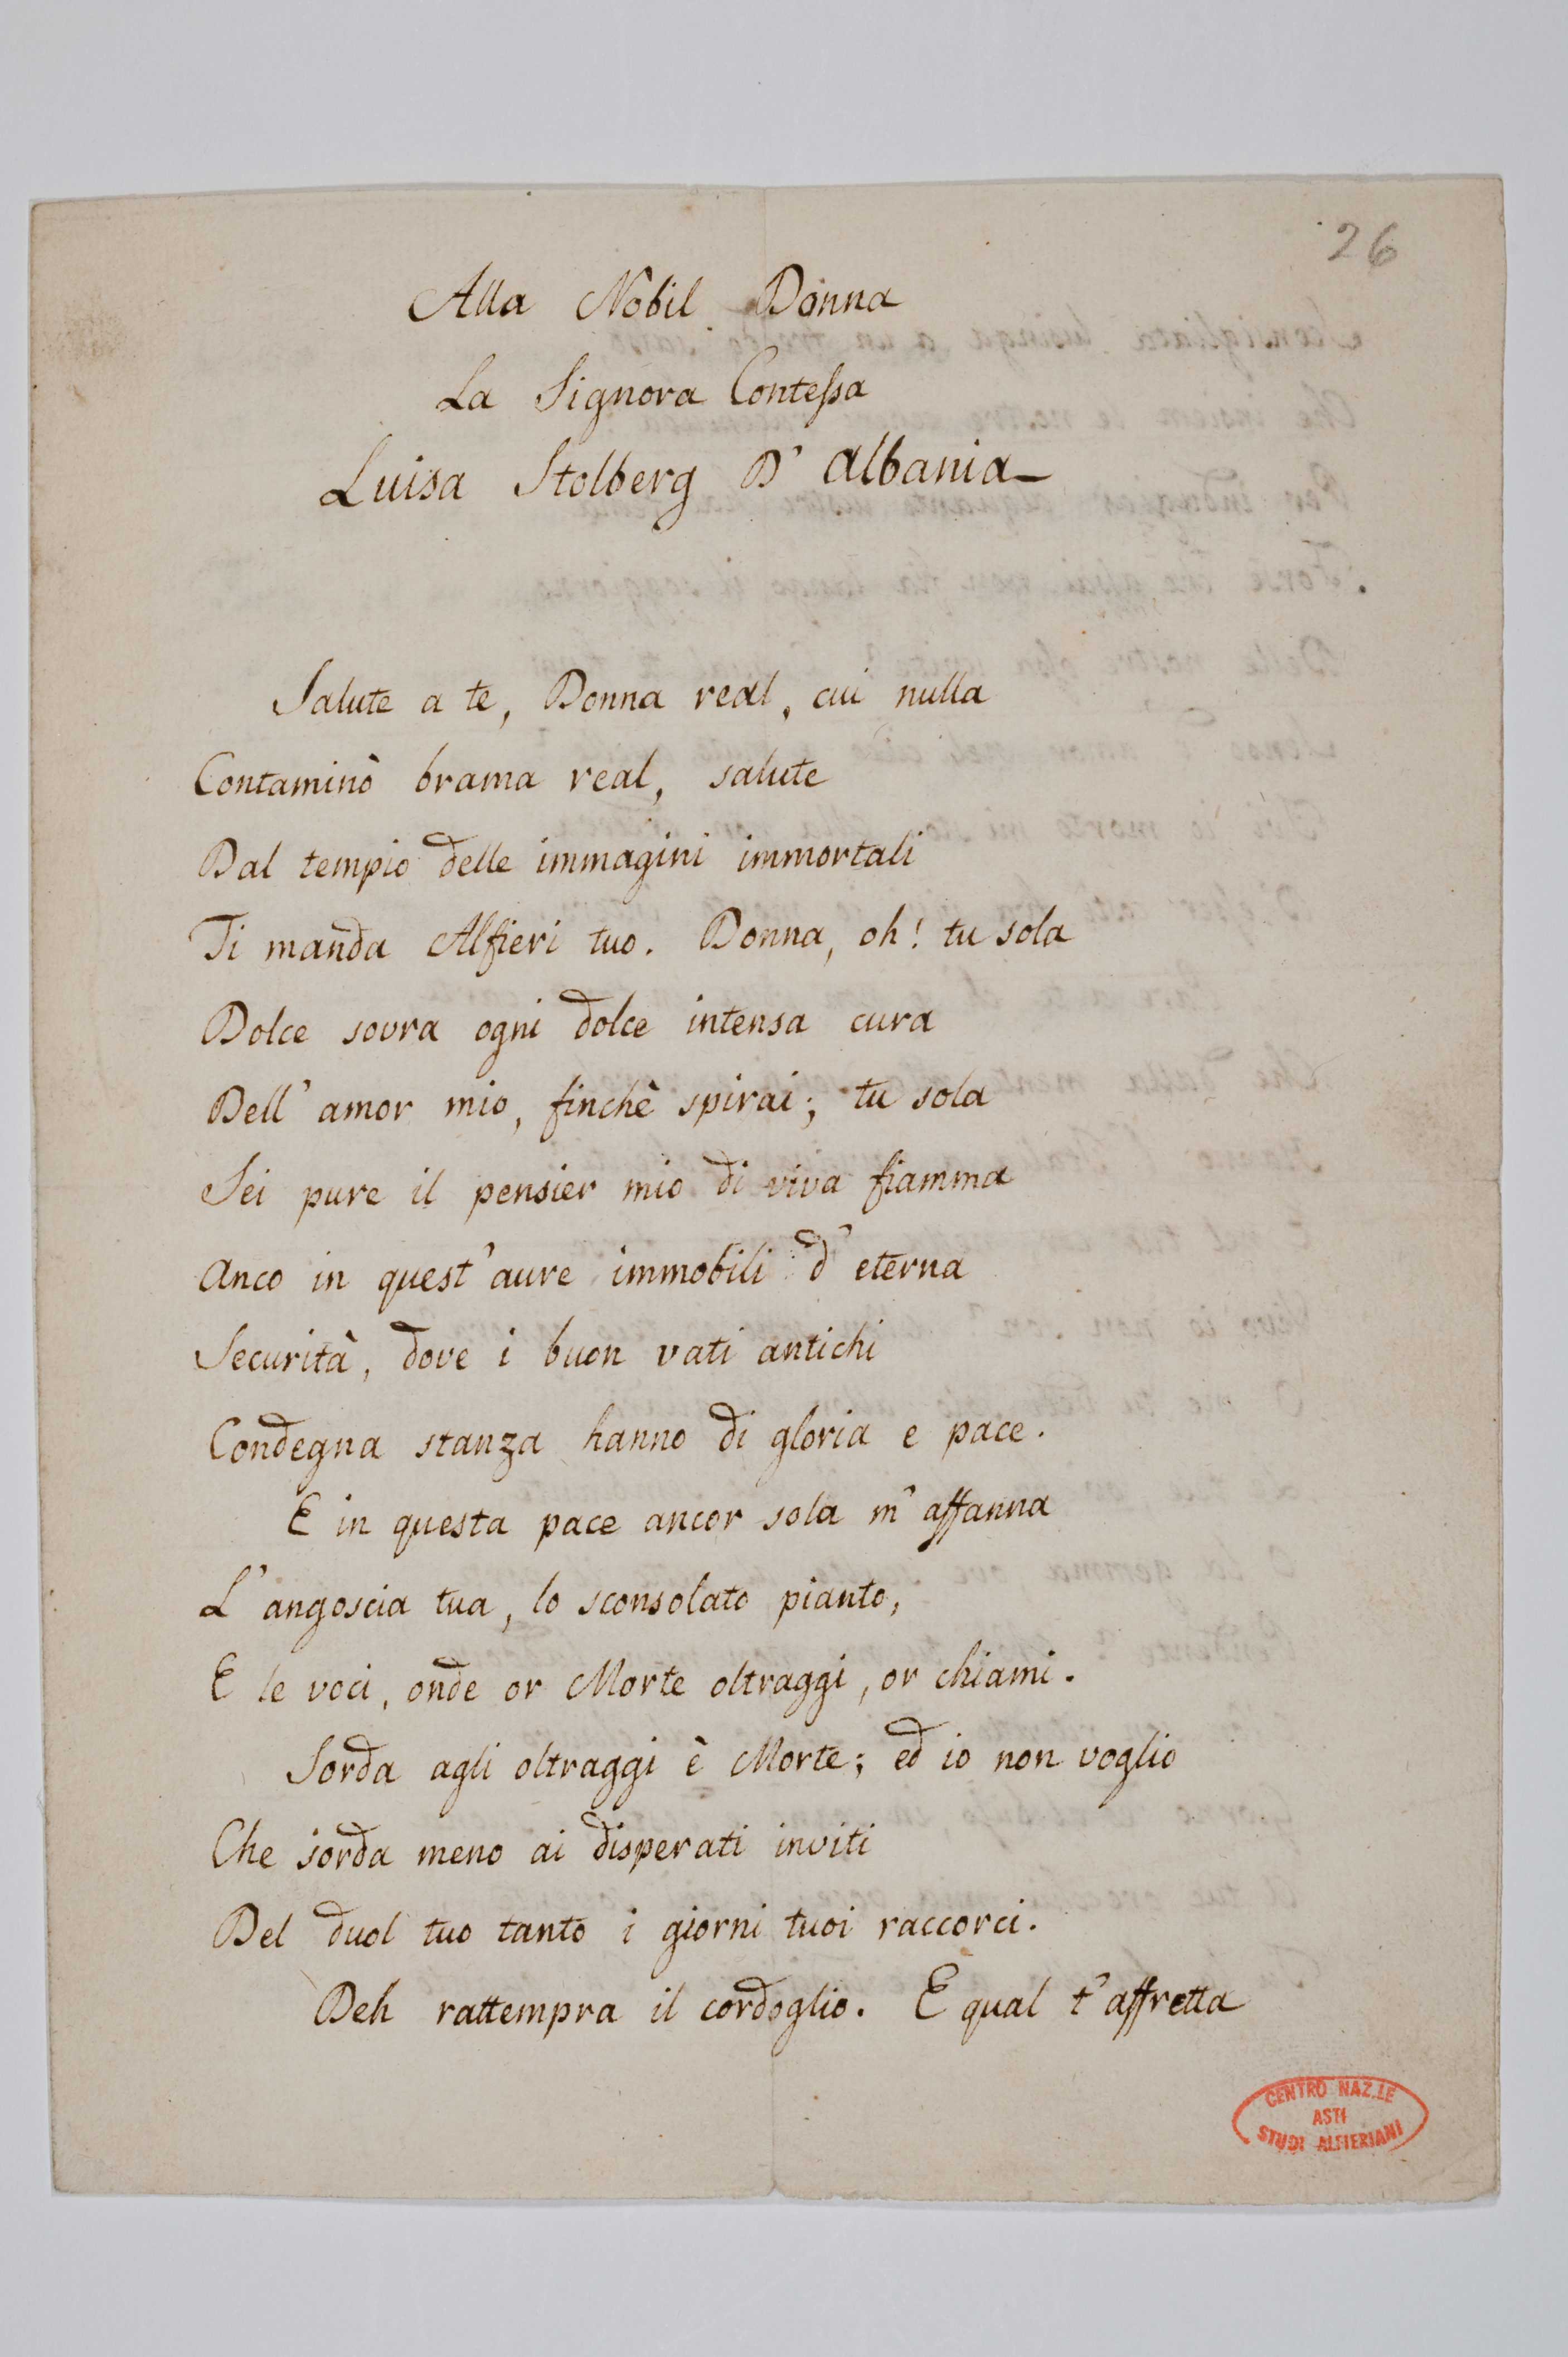 26
Alla Nobil Donna
La Signora Contessa
Luisa Stolberg D'Albania
Salute a te, Donna real, cui nulla
Contaminò brama real, salute
Dal tempio delle immagini immortali
Ti manda Alfieri tuo. Donna, oh! tu sola
Dolce sovra ogni dolce intensa cura
Dell'amor mio, finchè spirai; tu sola
Sei pure il pensier mio di viva fiamma
Anco in quest'aure immobili d'eterna
Securità, dove i buon vati antichi
Condegna stanza hanno di gloria e pace.
E in questa pace ancor sola m'affanna
L'angoscia tua, lo sconsolato pianto,
E le voci, onde or Morte oltraggi, or chiami.
Sorda agli oltraggi è Morte; ed io non voglio
Che sorda meno ai disperati inviti
Del duol tuo tanto i giorni tuoi raccorci.
Deh rattempra il cordoglio. E qual t'affretta
CENTRO NAZ.LE
ASTI
STUDI ALFIERIANI